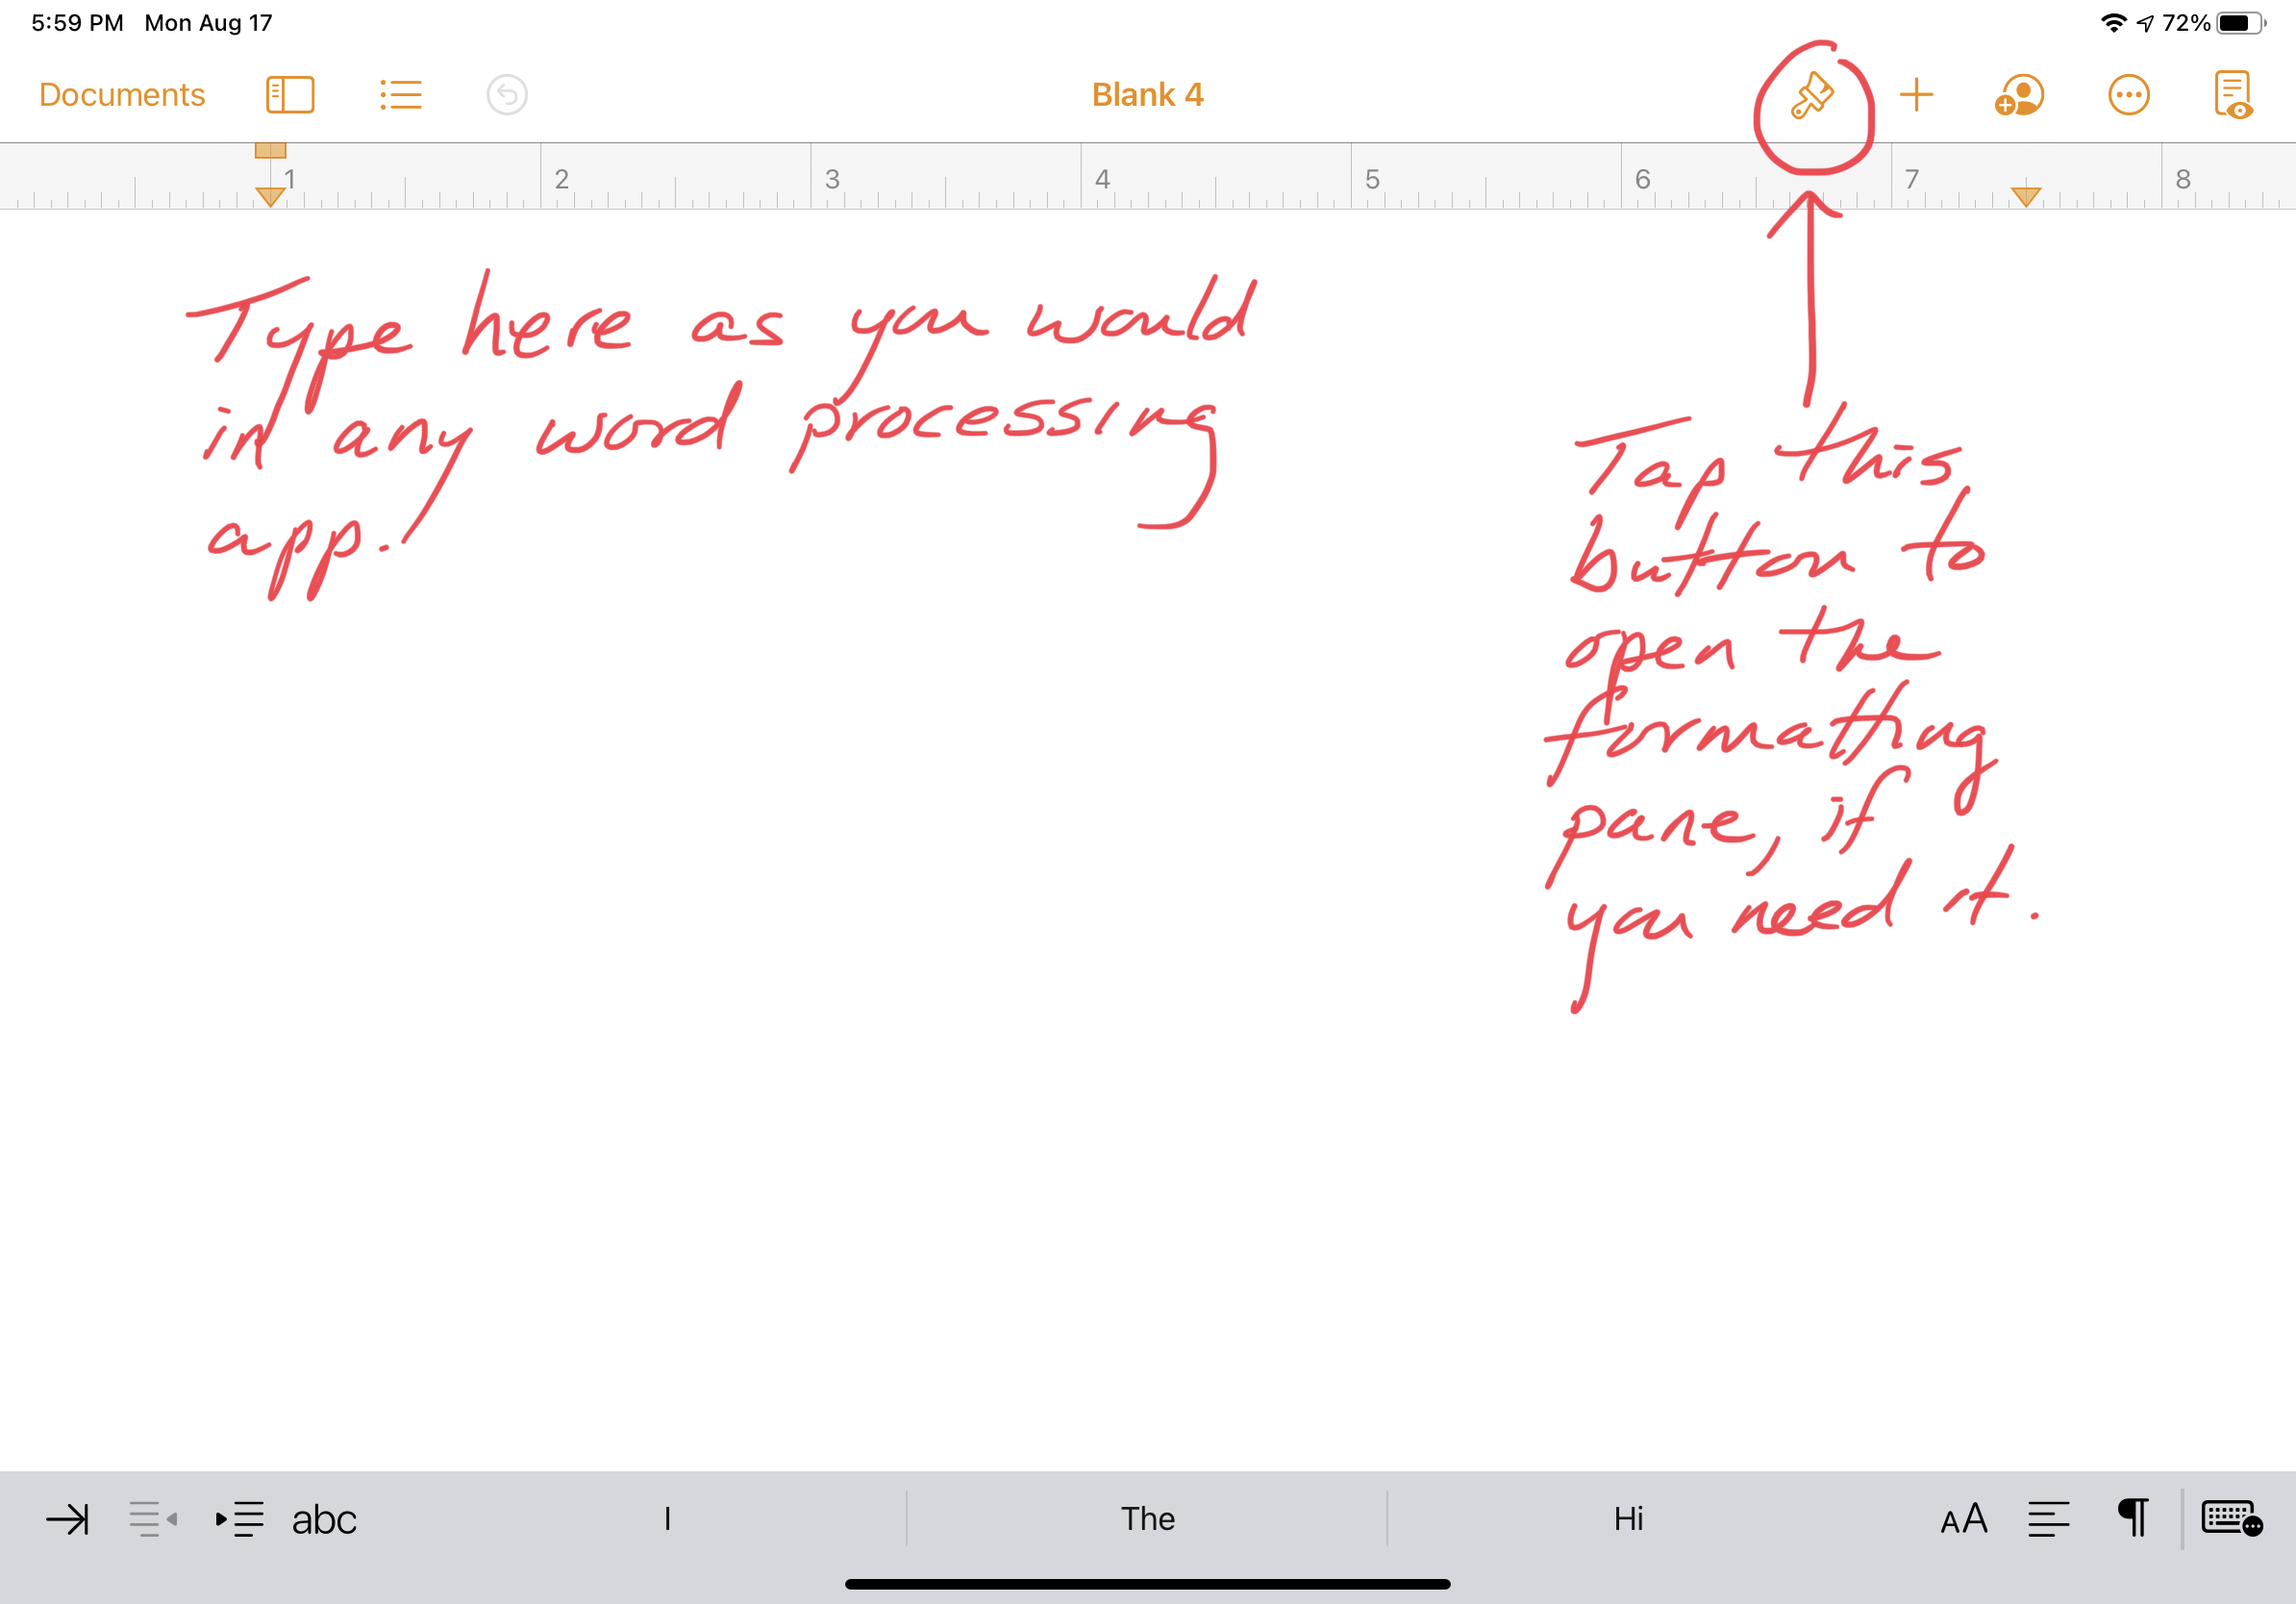 5:59 PM Mon Aug 17 72%
Documents Blank 4
1 2 3 4 5 6 7 8
Type here as you would
in any word processing
app.
Tap this
button to
open the
formatting
pane, if
you need it.
abc I The Hi AA